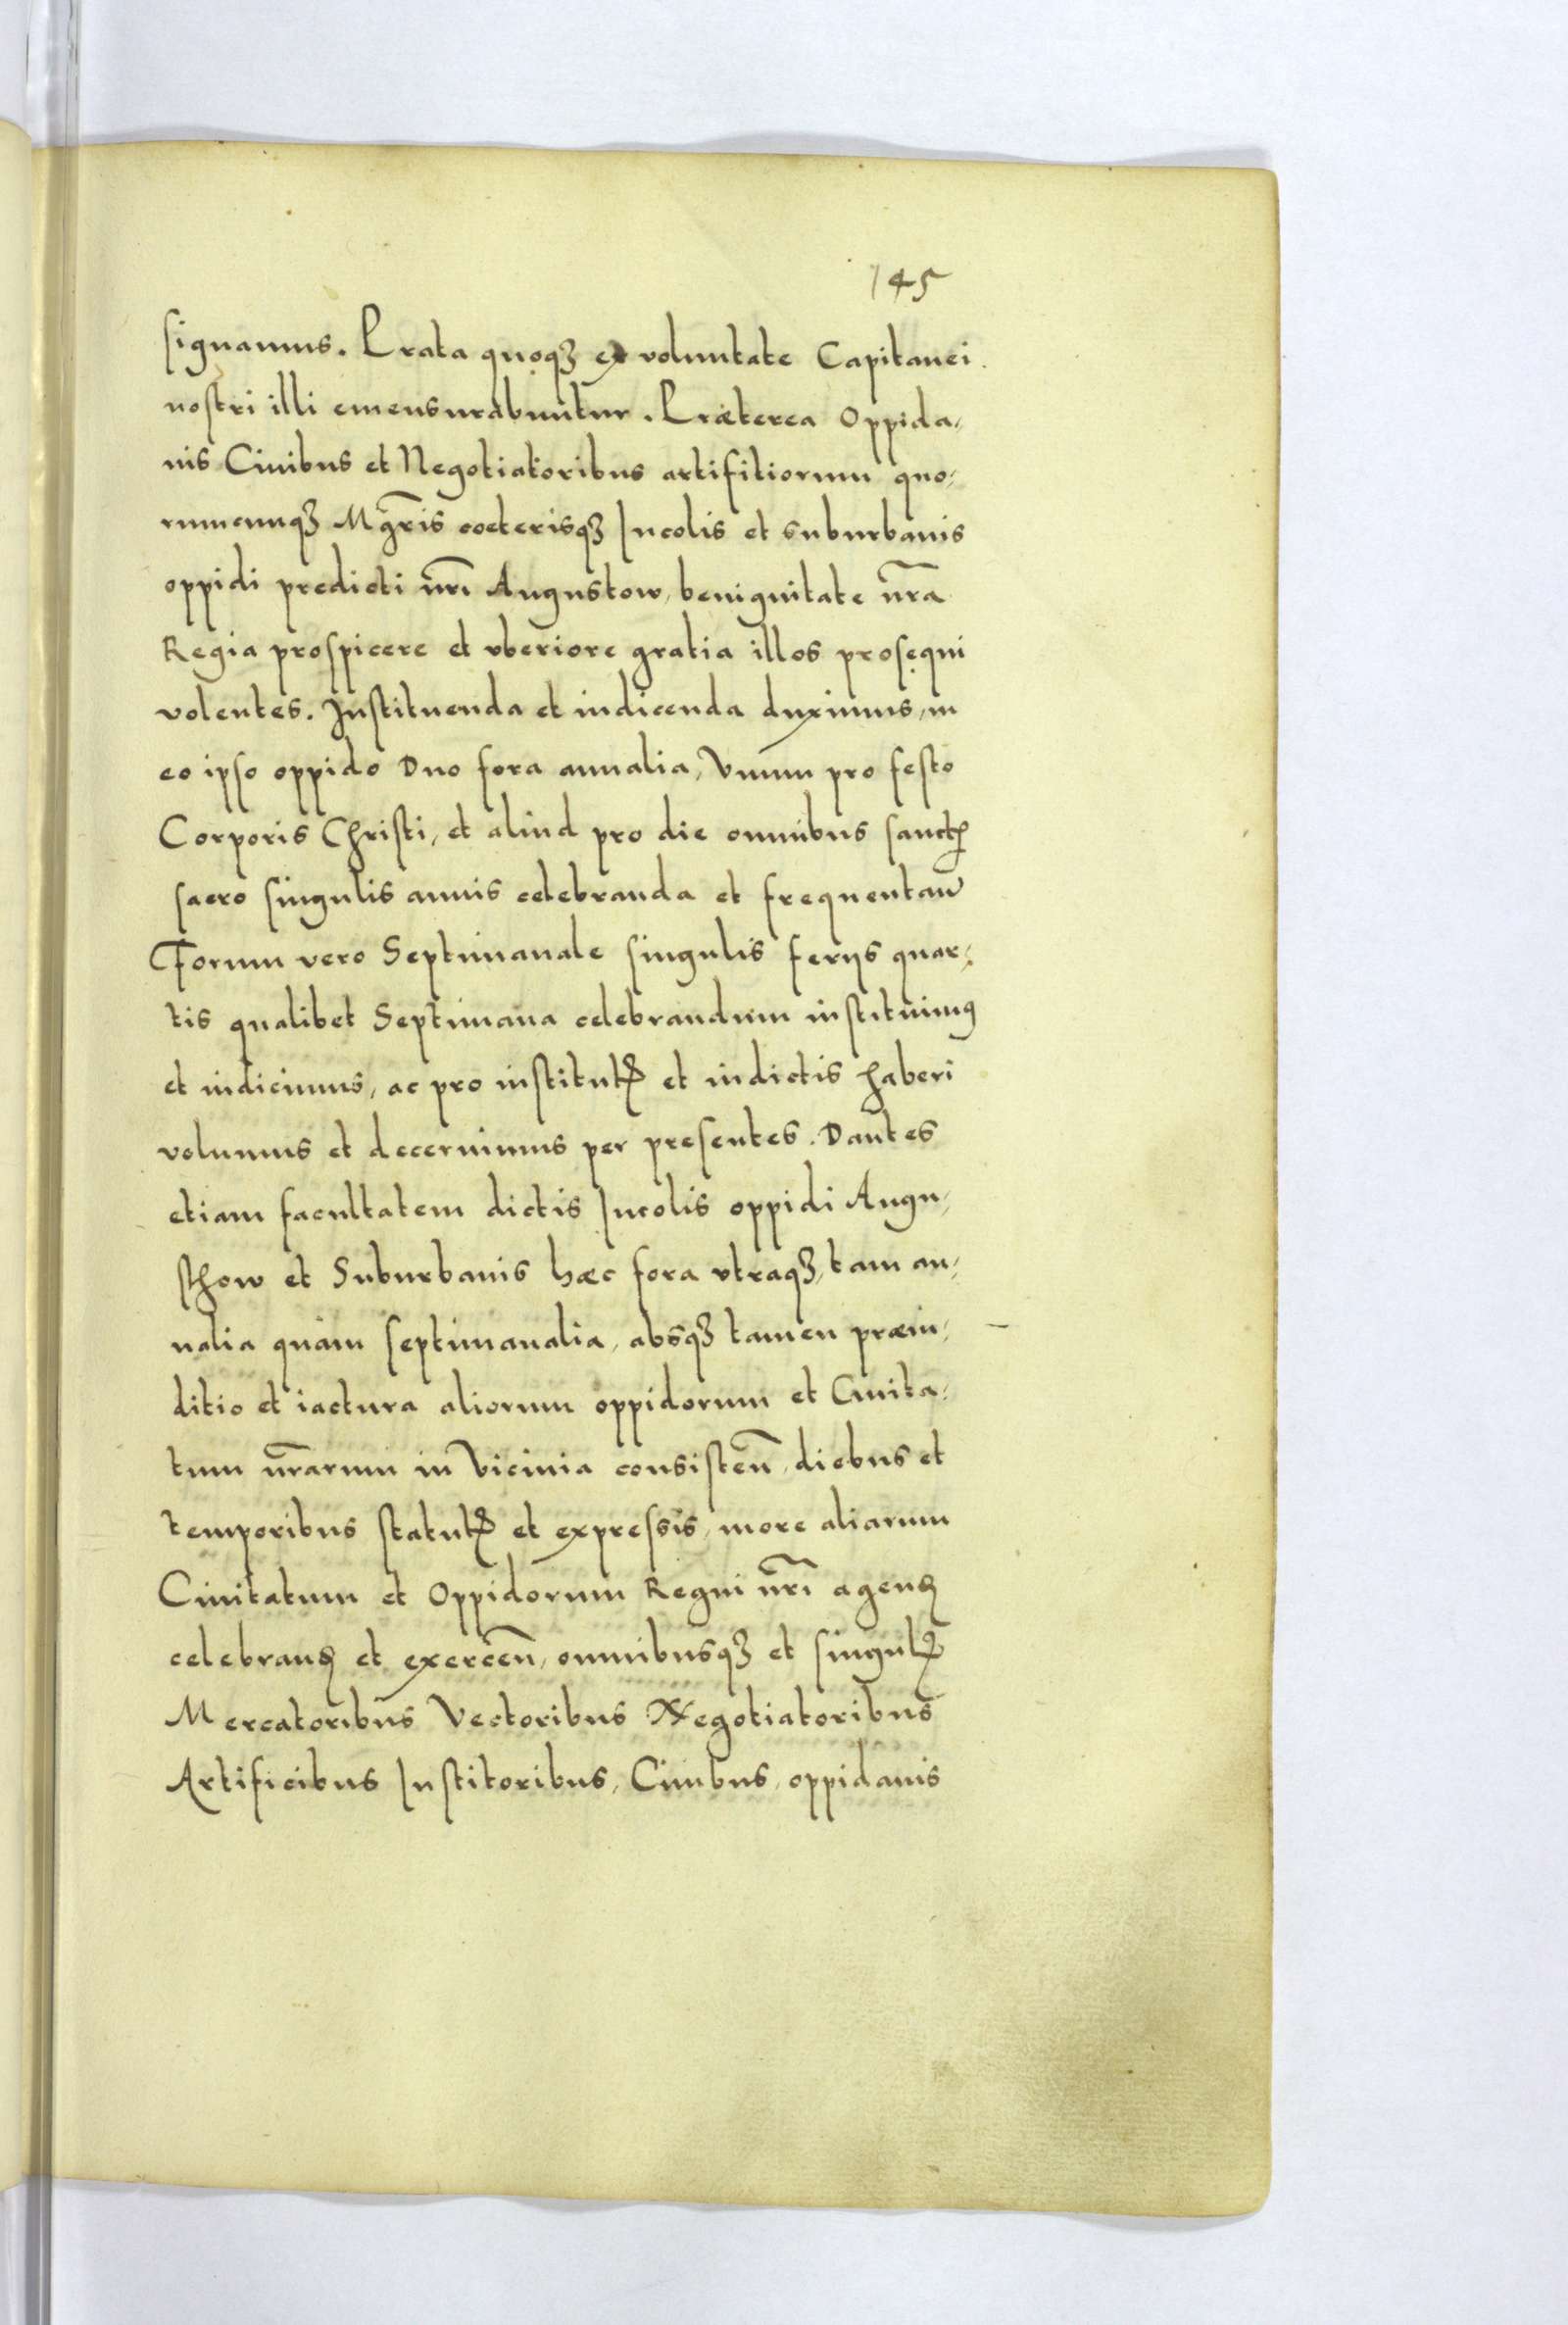 145
signamus. Prata quoqꝫ ex voluntate Capitanei
nostri illi emensurabuntur. Præterea Oppida-
nis Ciuibus et Negotiatoribus artifitiorum quo-
rumcunqꝫ Mgr̃is coeterisqꝫ Incolis et suburbanis
oppidi predicti nr̃i Augustow, benignitate nr̃a
Regia prospicere et vberiore gratia illos prosequi
volentes. Instituenda et indicenda duximus, in
eo ipso oppido Duo fora annalia, Vnum pro festo
Corporis Christi, et aliud pro die omnibus sanctꝭ
sacro singulis annis celebranda et frequentan̄
Forum vero Septimanale singulis ferijs quar-
tis qualibet Septimana celebrandum instituimꝰ
et indicimus, ac pro institutꝭ et indictis haberi
volumus et decernimus per presentes. Dantes
etiam facultatem dictis Incolis oppidi Augu-
sthow et Suburbanis hæc fora vtraqꝫ, tam an-
nalia quàm septimanalia, absqꝫ tamen præiu-
ditio et iactura aliorum oppidorum et Ciuita-
tum nr̃arum in Vicinia consisten̄, diebus et
temporibus statutꝭ et expressis, more aliarum
Ciuitatum et Oppidorum Regni nr̃i agenꝺ
celebranꝺ et exercen̄, omnibusqꝫ et singulꝭ
Mercatoribus Vectoribus Negotiatoribus
Artificibus Institoribus, Ciuibus, oppidanis